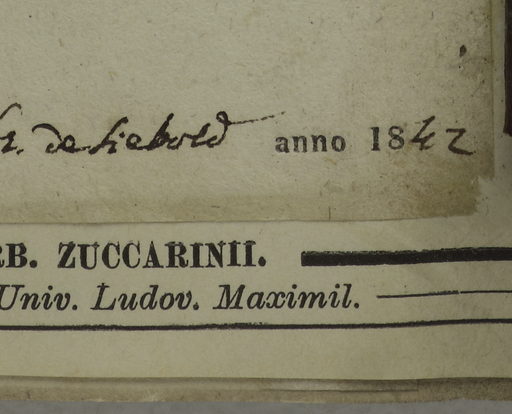 de Siebold anno 1842
RB. ZUCCARINII.
Univ. Ludov. Maximil.